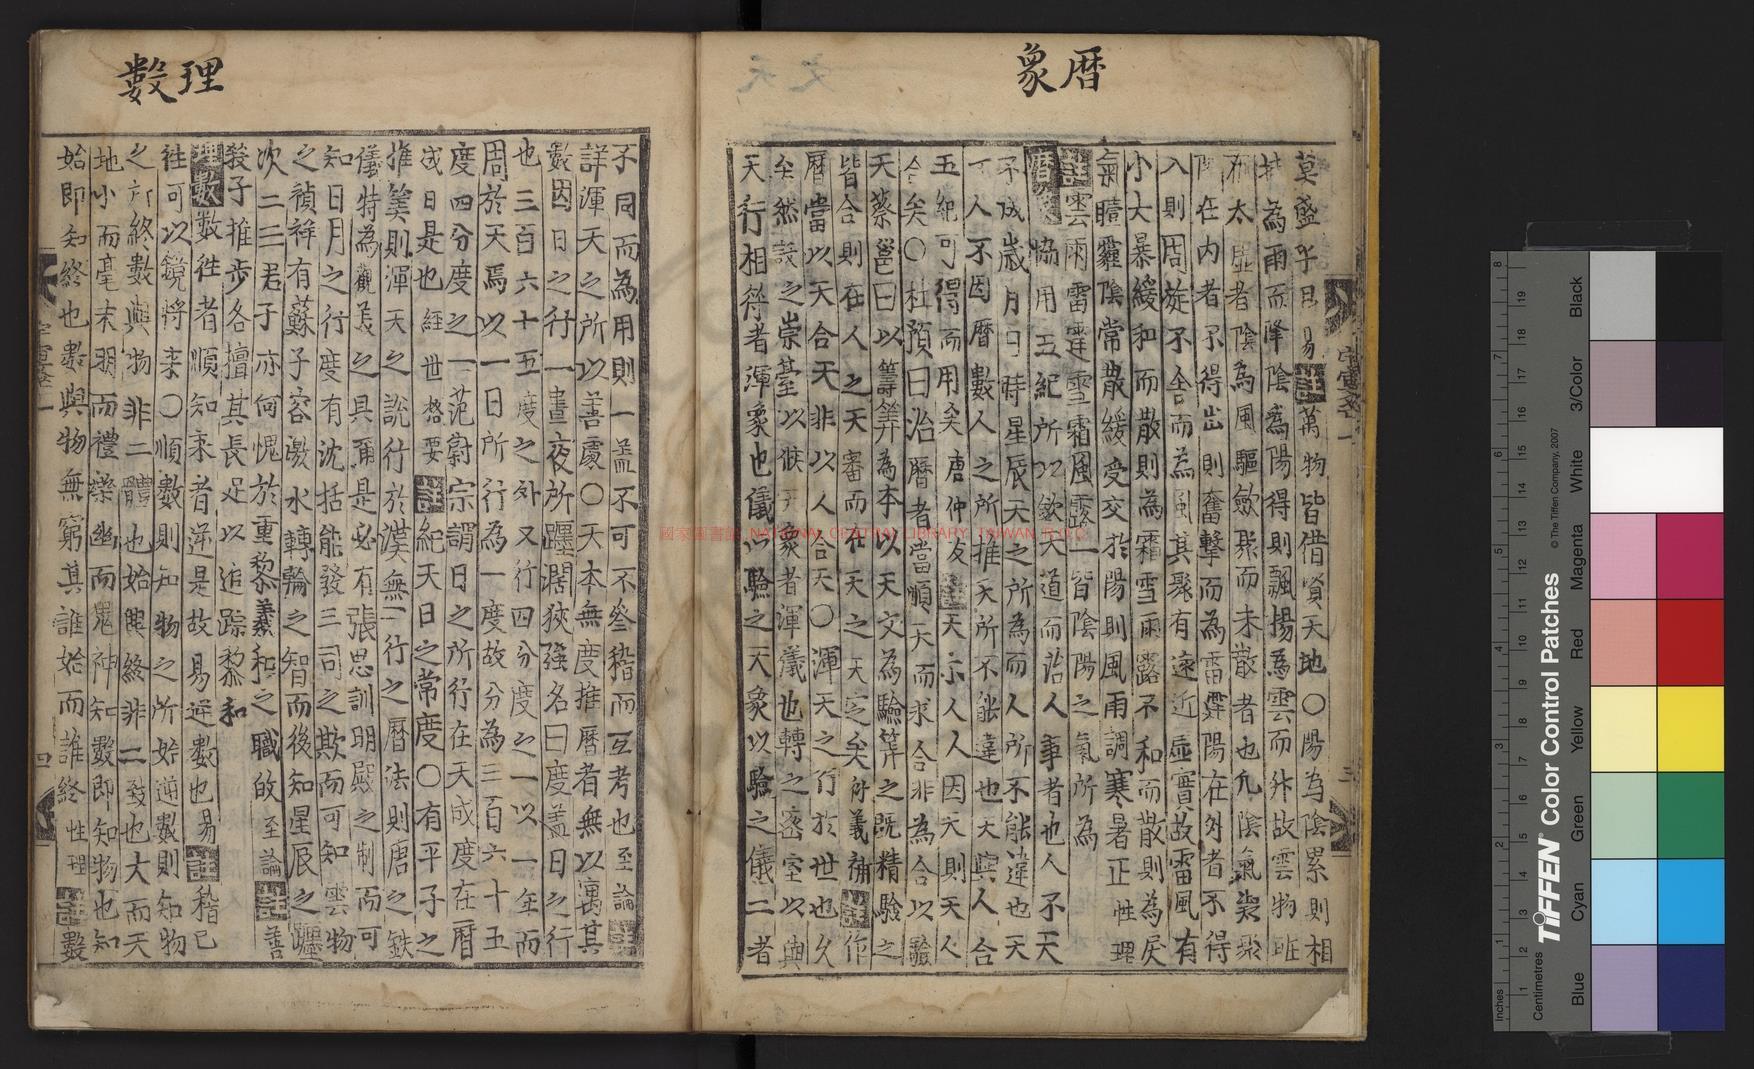 曆象
莫盛乎日易註萬物皆借資天地○陽為陰累則相
持為雨而降陰為陽得則飄揚為雲而升故雲物班
布太虛者陰為風驅歛聚而未散者也凡陰氣凝聚
陽在內者不得出則奮擊而為雷霆陽在外者不得
入則周旋不舍而為風其聚有遠近虛實故雷風有
小大暴緩和而散則為霜雪雨露不和而散則為戾
氣曀霾陰常散緩受交於陽則風雨調寒暑正性理
註雲雨雷霆雪霜風露一皆陰陽之氣所為
曆象協用五紀所以欽天道而治人事者也人不天
不成歲月日時星辰天之所為而人所不能違也天
不人不因曆數人之所推天所不能違也天與人合
五紀可得而用矣唐仲友註天示人人因天則天人
合矣○杜預曰治曆者當順天而求合非為合以驗
天蔡邕曰以籌筭為本以天文為驗筭之既精驗之
皆合則在人之天審而在天之天定矣衍義補註作
曆當以天合天非以人合天○渾天之行於世也久
矣然設之崇臺以候天象者渾儀也轉之密室以與
天行相符者渾象也儀以驗之天象以驗之儀二者
三
理數
不同而為用則一盖不可不叅稽而互考也至論註
詳渾天之所以善處○天本無度推曆者無以寓其
數因日之行一晝夜所躔濶狹强名曰度盖日之行
也三百六十五度之外又行四分度之一以一年而
周於天焉以一日所行為一度故分為三百六十五
度四分度之一范蔚宗謂日之所行在天成度在曆
成日是也經世格要註紀天日之常度○有平子之
推筭則渾天之說行於漢無一行之曆法則唐之鉄
儀特為觀美之具爾是必有張思訓明殿之制而可
知日月之行度有沈括能發三司之欺而可知雲物
之禎祥有蘇子容激水轉輪之智而後知星辰之躔
次二三君子亦何愧於重黎羲和之職故至論註善
發子推步各擅其長足以追踪黎和
理數數徃者順知来者逆是故易逆數也易註稽已
徃可以鏡将来○順數則知物之所始逆數則知物
之所終數與物非二體也始與終非二致也大而天
地小而毫末明而禮樂幽而鬼神知數即知物也知
始即知終也數與物無窮其誰始而誰終性理註數
四
國家圖書館 NATIONAL CENTRAL LIBRARY, TAIWAN R.O.C.
Inches
Centimetres
TIFFEN Color Control Patches
© The Tiffen Company, 2007
Blue Cyan Green Yellow Red Magenta White 3/Color Black